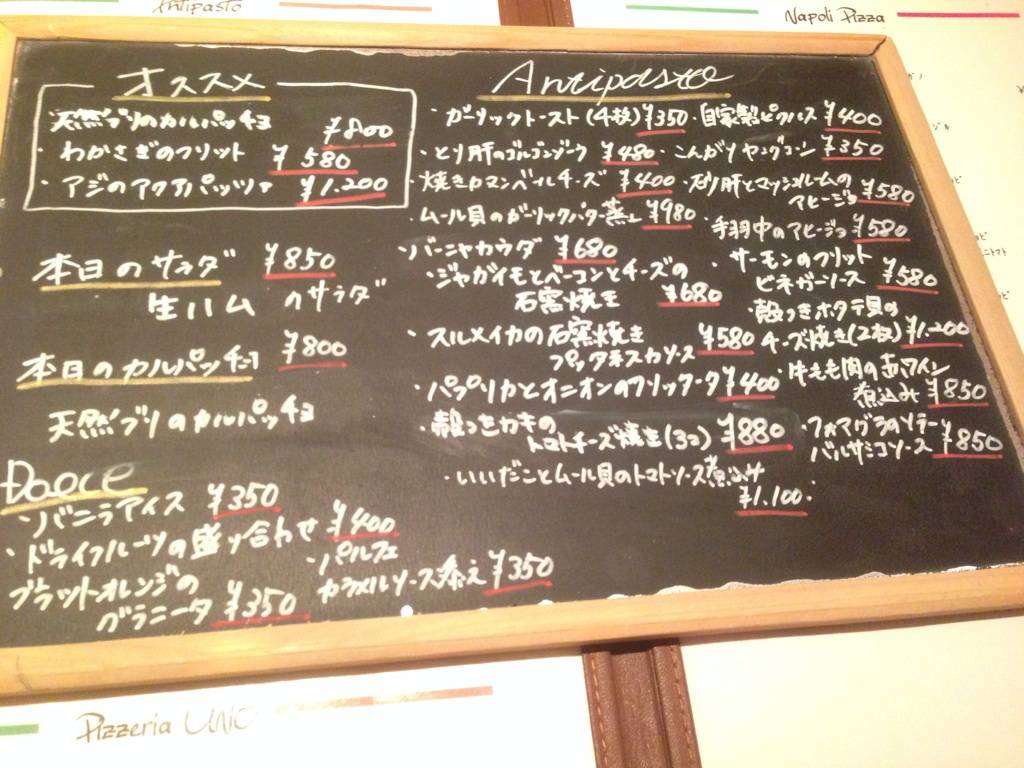 Antipasto
Napoli Pizza
オススメ
天然ブリのカルパッチョ ¥800
・わかさぎのフリット ¥580
・アジのアクアパッツァ ¥1.200
本日のサラダ ¥850
生ハムのサラダ
本日のカルパッチョ ¥800
天然ブリのカルパッチョ
Dolce
・バニラアイス ¥350
・ドライフルーツの盛り合わせ ¥400
ブラットオレンジの
グラニータ ¥350
・パルフェ
カラメルソース添え ¥350
Antipasto
・ガーリックトースト(4枚) ¥350
・とり肝のゴルゴンゾーラ ¥480
・焼きカマンベールチーズ ¥400
・ムール貝のガーリックバター蒸し ¥980
・バーニャカウダ ¥680
・ジャガイモとベーコンとチーズの
石窯焼き ¥680
・スルメイカの石窯焼き
プッタネスカソース ¥580
・パプリカとオニオンのフリッタータ ¥400
・殻つきカキの
トマトチーズ焼き(3コ) ¥880
・いいだことムール貝のトマトソース煮込み
¥1.100
・自家製ピクルス ¥400
・こんがりヤングコーン ¥350
・砂肝とマッシュルームの
アヒージョ ¥580
・手羽中のアヒージョ ¥580
・サーモンのフリット
ビネガーソース ¥580
・殻つきホタテ貝の
チーズ焼き(2枚) ¥1.200
・牛もも肉の赤ワイン
煮込み ¥850
・フォアグラのソテー
バルサミコソース ¥850
Pizzeria UNO